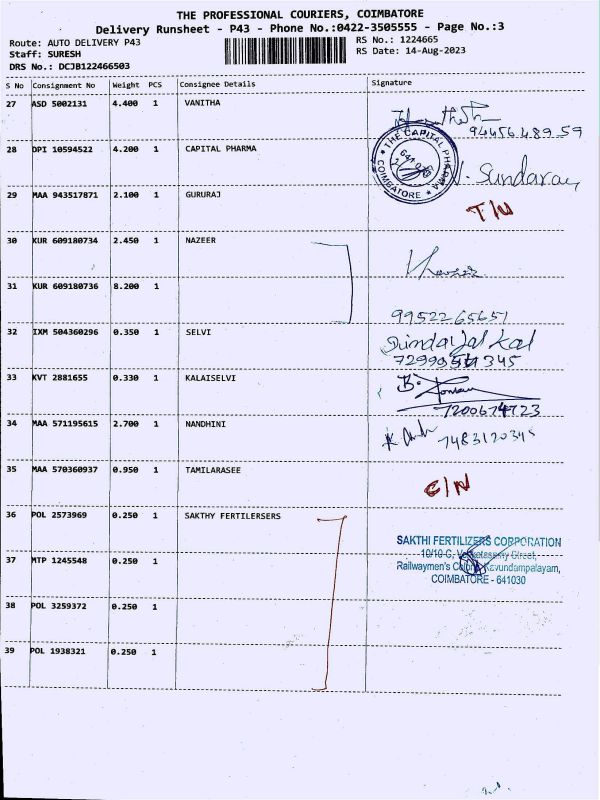 THE PROFESSIONAL COURIERS, COIMBATORE
Delivery Runsheet - P43 - Phone No.:0422-3505555 - Page No.:3
Route: AUTO DELIVERY P43 RS No.: 1224665
Staff: SURESH RS Date: 14-Aug-2023
DRS No.: DCJB122466503
S No Consignment No Weight PCS Consignee Details Signature
27 ASD 5002131 4.400 1 VANITHA
9445648959
28 DPI 10594522 4.200 1 CAPITAL PHARMA
THE CAPITAL PHARMA
COIMBATORE
V. Sundaray
29 MAA 943517871 2.100 1 GURURAJ T/N
30 KUR 609180734 2.450 1 NAZEER
31 KUR 609180736 8.200 1
9952265651
32 IXM 504360296 0.350 1 SELVI
33 KVT 2881655 0.330 1 KALAISELVI
34 MAA 571195615 2.700 1 NANDHINI
7483120345
35 MAA 570360937 0.950 1 TAMILARASEE C/N
36 POL 2573969 0.250 1 SAKTHY FERTILERSERS
SAKTHI FERTILIZERS CORPORATION
10/10-C, Street,
37 MTP 1245548 0.250 1
Railwaymen's Colony, Kavundampalayam,
COIMBATORE - 641030
38 POL 3259372 0.250 1
39 POL 1938321 0.250 1